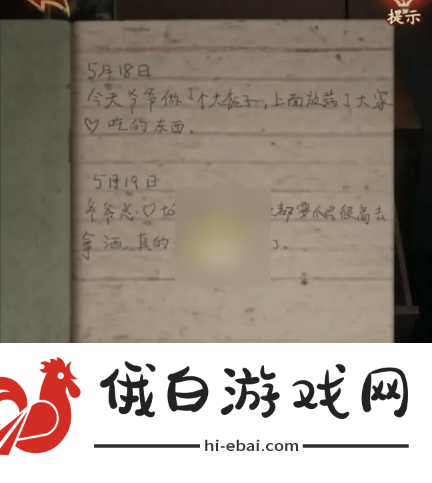 提示
5月18日
今天爷爷做了个大柜子，上面放满了大家
♡吃的东西。
5月19日
爷爷总♡ 都要爬很高去
拿酒，真的 了。
俄白游戏网
hi-ebai.com